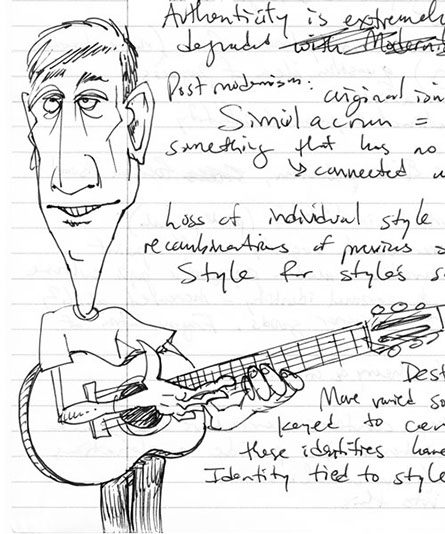 Authenticity is extremel
degraded with Moderni
Post modernism: original isn
Simulacrum =
something that has no
↳ connected
Loss of individual style
recombinations of previous
Style for style's s
Dest
More varied so
keyed to cer
these identities have
Identity tied to style